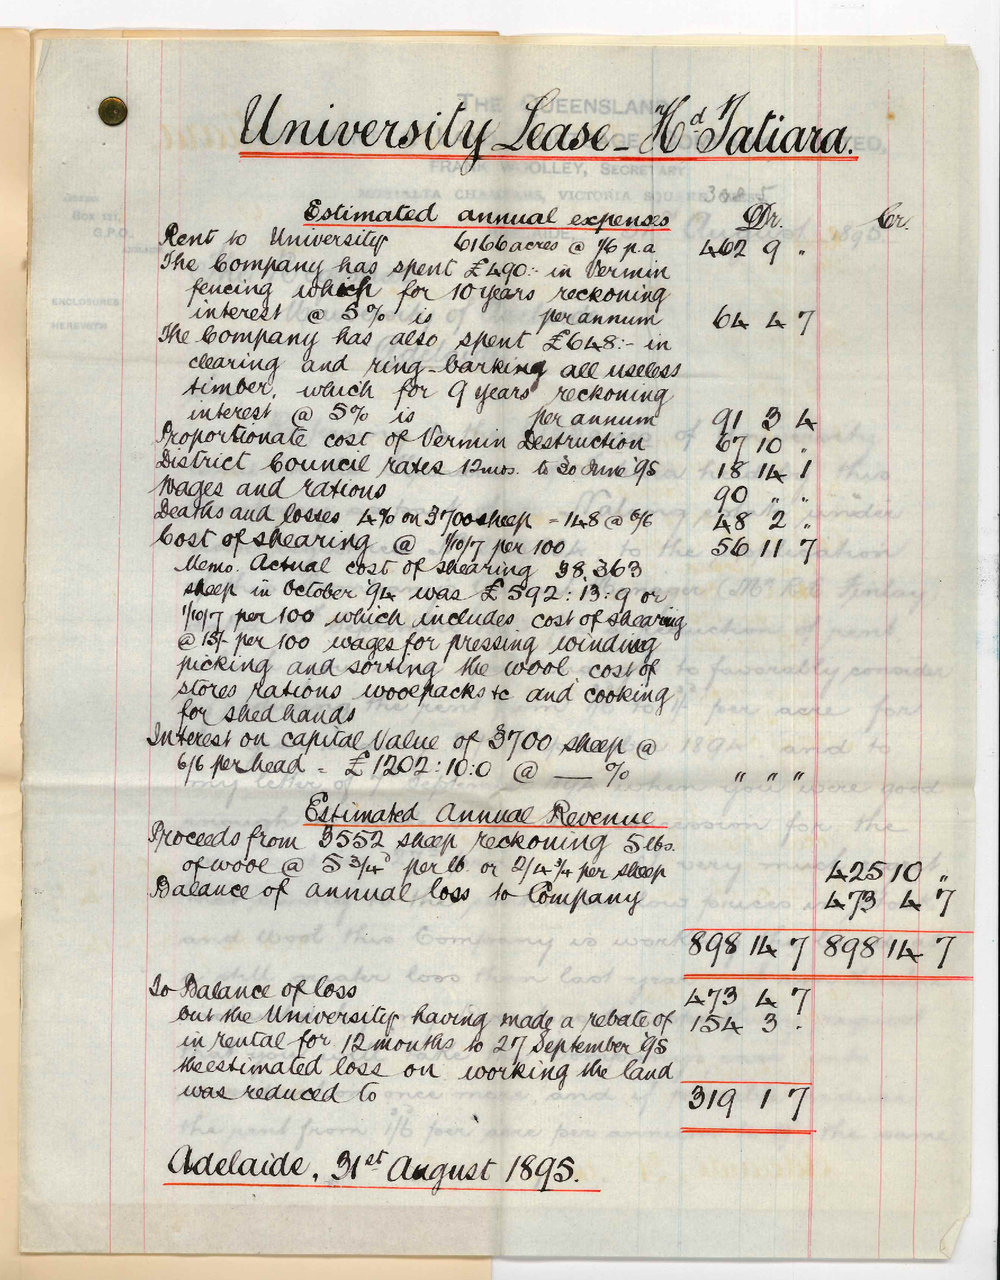 University Lease - Hd Tatiara.
3085
Estimated annual expenses Dr. Cr.
Rent to University 6166 acres @ 1/6 p.a 462 9 "
The Company has spent £490:- in Vermin
fencing which for 10 years reckoning
interest @ 5% is per annum 64 4 7
The Company has also spent £648:- in
clearing and ring-barking all useless
timber, which for 9 years reckoning
interest @ 5% is per annum 91 3 4
Proportionate cost of Vermin Destruction 67 10 "
District Council rates 12mos. to 30 June '95 18 14 1
Wages and rations 90 " "
Deaths and losses 4% on 3700 sheep = 148 @ 6/6 48 2 "
Cost of shearing @ 1/10/7 per 100 56 11 7
Memo. Actual cost of shearing 38,363
sheep in October '94 was £592:13:9 or
1/10/7 per 100 which includes cost of shearing
@ 15/- per 100 wages for pressing winding
picking and sorting the wool cost of
stores rations woolpacks &c and cooking
for shed hands
Interest on capital Value of 3700 sheep @
6/6 per head = £1202:10:0 @ — % " " "
Estimated Annual Revenue
Proceeds from 3552 sheep reckoning 5 lbs.
of wool @ 5 3/4d per lb. or 2/4 3/4 per sheep 425 10 "
Balance of annual loss to Company 473 4 7
898 14 7 898 14 7
To Balance of loss 473 4 7
but the University having made a rebate of 154 3 .
in rental for 12 months to 27 September '95
the estimated loss on working the land
was reduced to 319 1 7
Adelaide, 31st August 1895.